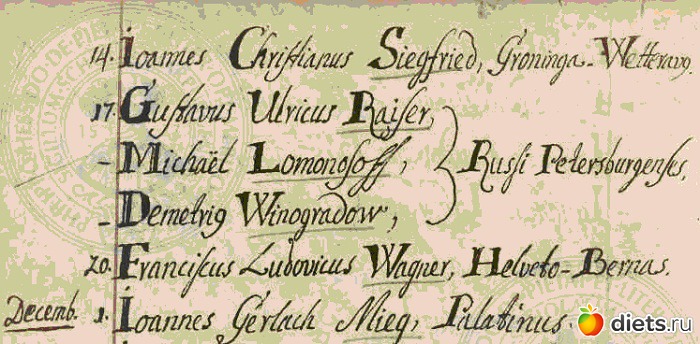 14. Ioannes Christianus Siegfried, Groninga-Wetteravg.
17. Gustavus Ulricus Raiser,
– Michaël Lomonosoff,
– Demetrig Winogradow,
Russi Petersburgenses.
20. Franciscus Ludovicus Wagner, Helveto-Bernas.
Decemb. 1. Ioannes Gerlach Mieg, Palatinus.
diets.ru